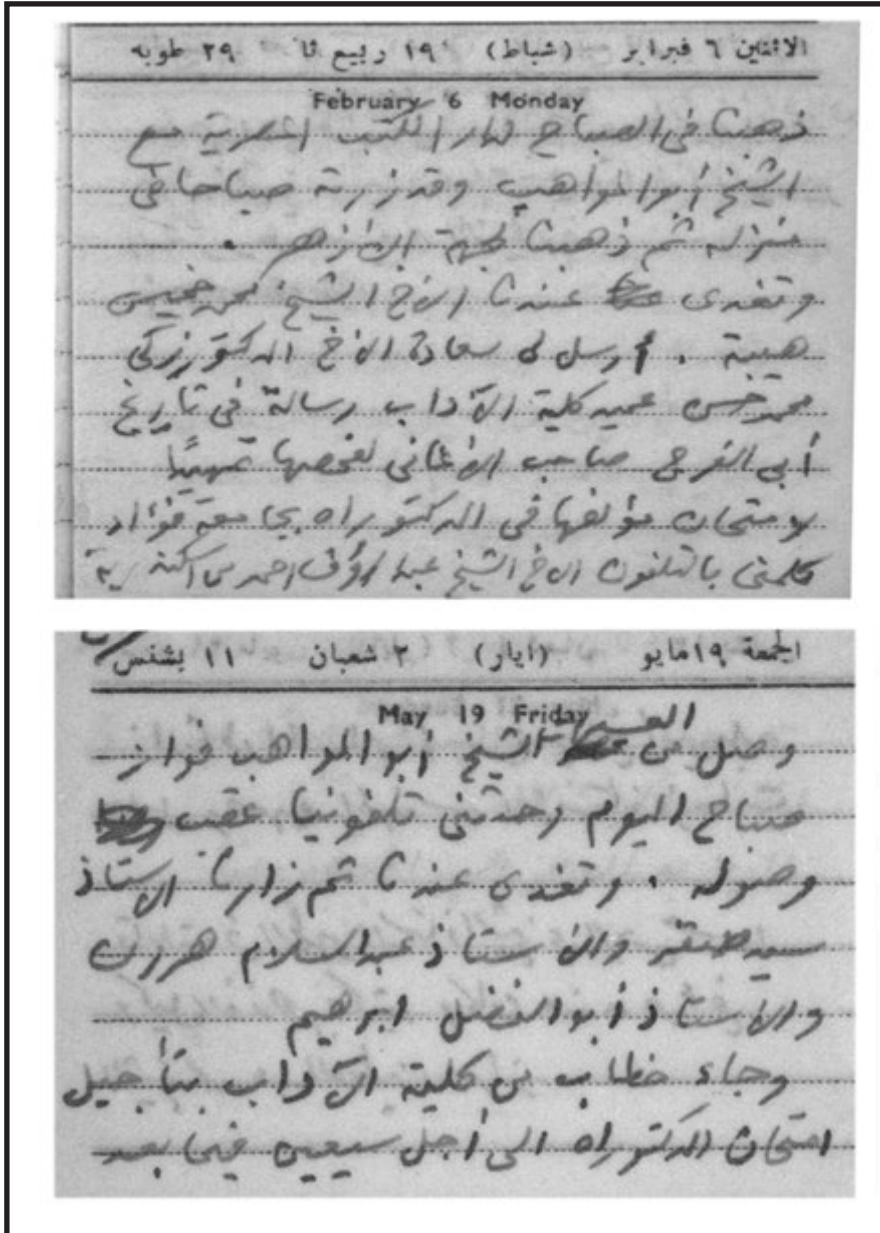 الاثنين ٦ فبراير (شباط) ١٩ ربيع ثا ٢٩ طوبه
February 6 Monday
ذهبنا فى الصباح لدار الكتب المصرية مع
الشيخ أبو المواهب وقد زرته صباحا فى
منزله ثم ذهبنا لجهة الأزهر .
وتغدى عندنا الأخ الشيخ محمد خميس
هيبة . أرسل لى سعادة الأخ الدكتور زكى
محمد حسن عميد كلية الآداب رسالة فى تاريخ
أبى الفرج صاحب الأغانى لفحصها تمهيدًا
لامتحان مؤلفها فى الدكتوراه بجامعة فؤاد
كلمنى بالتلفون الأخ الشيخ عبد الرؤوف احمد من اسكندرية
الجمعة ١٩ مايو (ايار) ٢ شعبان ١١ بشنس
May 19 Friday
وصل من الشيخ أبو المواهب فواز
صباح اليوم وحدثنى تلفونيا عقب
وصوله . وتغدى عندنا ثم زارنا الاستاذ
سيد صقر والأستاذ عبد السلام هرون
والأستاذ أبو الفضل ابرهيم
وجاء خطاب من كلية الآداب بتأجيل
امتحان الدكتوراه الى أجل سيعين فيما بعد